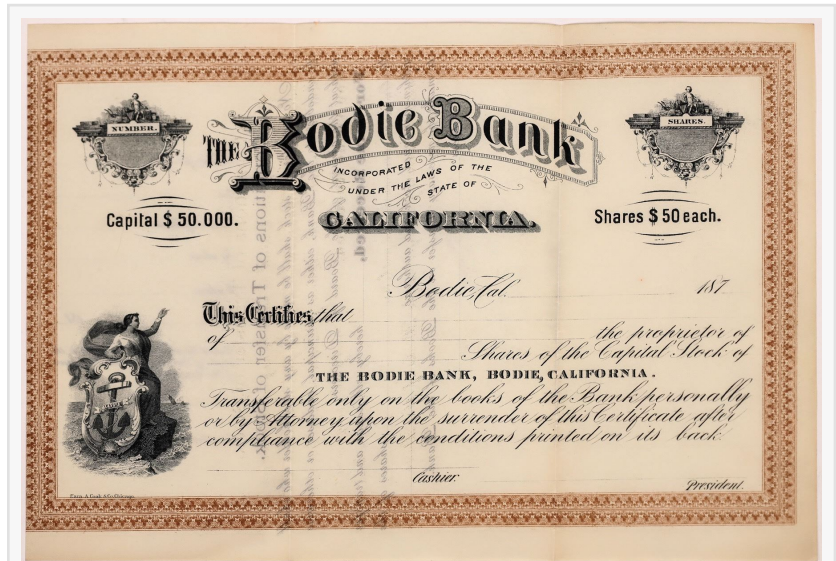 NUMBER.
SHARES.
THE Bodie Bank
INCORPORATED
UNDER THE LAWS OF THE
STATE OF
CALIFORNIA.
Capital $ 50.000.
Shares $ 50 each.
Bodie, Cal. 187
This Certifies that
of the proprietor of
Shares of the Capital Stock of
THE BODIE BANK, BODIE, CALIFORNIA.
Transferable only on the books of the Bank personally
or by Attorney upon the surrender of this Certificate after
compliance with the conditions printed on its back.
Cashier.
President.